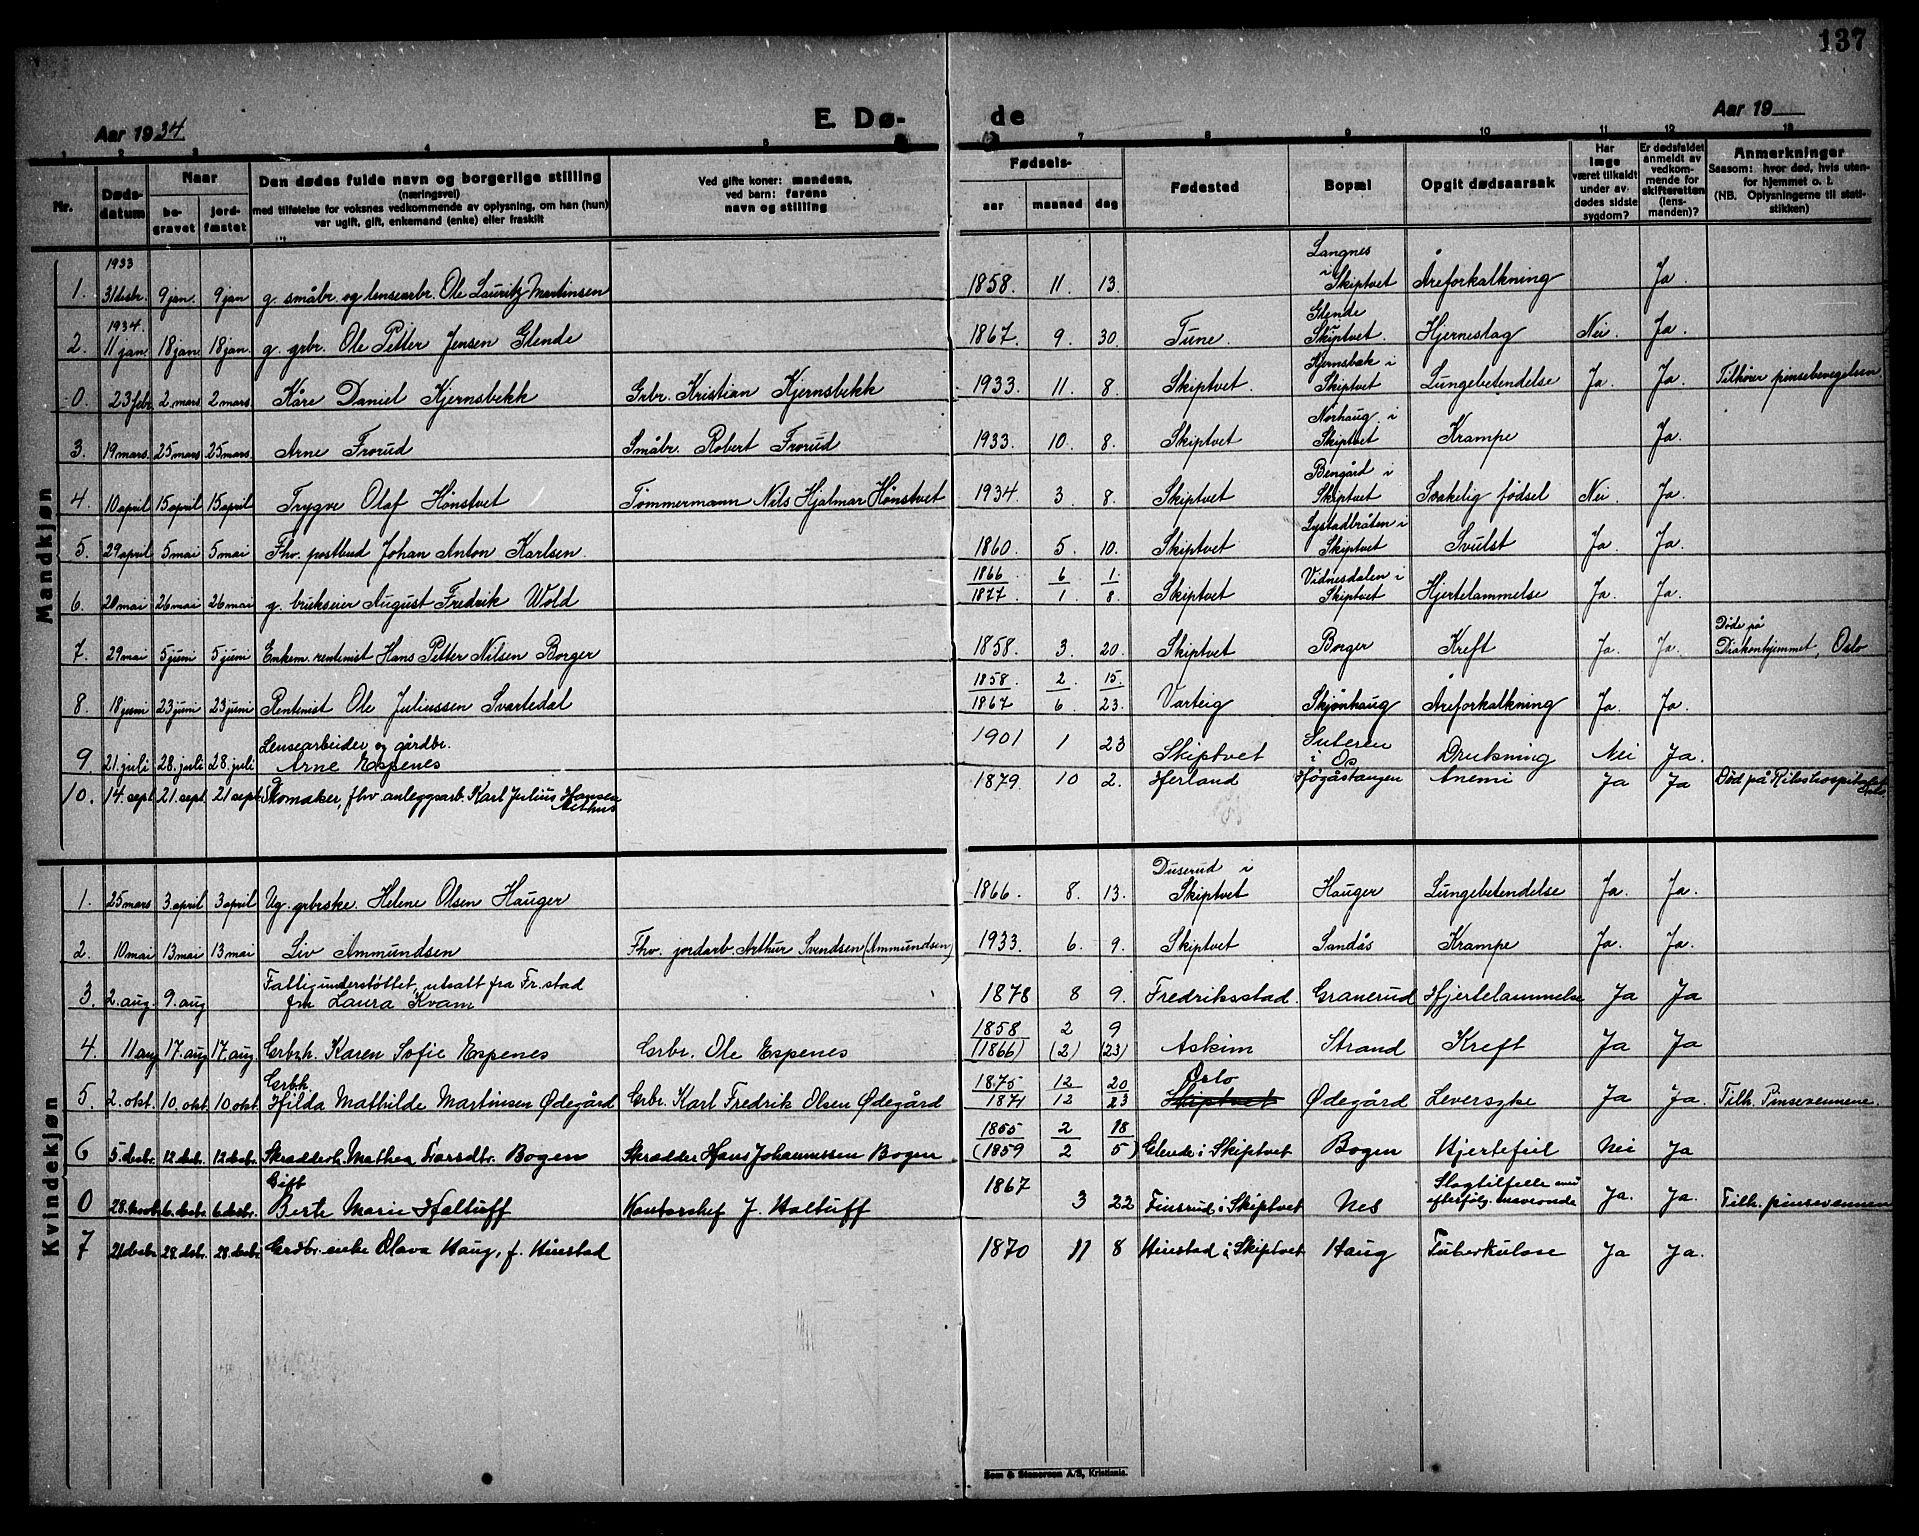 137
Aar 1934
E. Dø-
de
Aar 19
1 2 3 4 5 6 7 8 9 10 11 12 13
Nr.
Døds-
datum
Naar
be-
gravet
jord-
fæstet
Den dødes fulde navn og borgerlige stilling
(næringsvei)
med tilføielse for voksnes vedkommende av oplysning, om han (hun)
var ugift, gift, enkemand (enke) eller fraskilt
Ved gifte koner: mandens,
ved barn: farens
navn og stilling
Fødsels-
aar maaned dag
Fødested
Bopæl
Opgit dødsaarsak
Har
læge
været tilkaldt
under av-
dødes sidste
sygdom?
Er dødsfaldet
anmeldt av
vedkom-
mende for
skifteretten
(lens-
manden)?
Anmerkninger
Saasom: hvor død, hvis uten-
for hjemmet o. l.
(NB. Oplysningerne til stati-
stikken)
Mandkjøn
1933
Langnes
1. 31 desbr. 9 jan. 9 jan g. småbr. og lensearbr. Ole Lauritz Martinsen 1858. 11. 13. i Skiptvet Åreforkalkning Ja.
1934. Glende
2. 11 jan. 18 jan. 18 jan. g. grbr. Ole Petter Jensen Glende 1867. 9. 30. Tune. Skiptvet. Hjerneslag Nei Ja.
Kjernsbæk i
0. 23 febr. 2. mars 2 mars Kåre Daniel Kjernsbekk Grbr. Kristian Kjernsbekk 1933. 11. 8. Skiptvet. Skiptvet Lungebetendelse Ja. Ja. Tilhører pinsebevegelsen
Nørhaug i
3. 19 mars. 25 mars 25 mars. Arne Frorud Småbr. Robert Frorud 1933. 10. 8. Skiptvet Skiptvet Krampe Ja.
Bergård i
4. 10 april 15 april 15 april Trygve Olaf Hønstvet Tømmermann Nils Hjalmar Hønstvet 1934. 3. 8. Skiptvet Skiptvet Vankelig fødsel Nei Ja.
Lystadbråten i
5. 29 april 5 mai 5 mai Fhv. postbud Johan Anton Karlsen. 1860. 5. 10. Skiptvet Skiptvet Svulst Ja. Ja.
1866 6 1 Vidnesdalen i
6. 20 mai 26 mai 26 mai g. brukseier August Fredrik Wold 1877. 1. 8. Skiptvet Skiptvet Hjertelammelse Ja. Ja.
Døde på
7. 29 mai 5 juni 5 juni Enkem. rentenist Hans Petter Nilsen Borger 1858. 3. 20. Skiptvet Borger Kreft Ja. Ja. Diakonhjemmet, Oslo
1858. 2. 15.
8. 18 juni 23 juni 23 juni Rentenist Ole Juliussen Svartedal 1867 6. 23. Varteig Skjønhaug Åreforkalkning Ja. Ja.
Lensearbeider og gårdbr. 1901 1 23 Suteren
9. 21. juli 28. juli 28. juli Arne Espenes Skiptvet i Os Drukning Nei Ja.
10. 14. sept. 21. sept. 21 sept. Skomaker, fhv. anleggsarb. Karl Julius Hansen 1879. 10 2. Herland Høgåstangen Anemi Ja Ja Død på Rikshospitalet
Kvindekjøn
Duserud i
1. 25 mars 3. april 3 april Ug. grbrske Helene Olsen Hauger 1866. 8. 13. Skiptvet Hauger Lungebetendelse Ja. Ja.
2. 10 mai 13 mai 13 mai Liv Ammundsen Fhv. jordarb. Arthur Svendsen (Ammundsen) 1933. 6. 9. Skiptvet Sandås Krampe Ja. Ja.
Fattigunderstøttet, utsatt fra Fr.stad
3. 2. aug. 9. aug frk Laura Kvam 1878 8 9. Fredriksstad. Granerud Hjertelammelse Ja Ja
1858 2 9
4. 11 aug 17. aug 17. aug. Grbrh. Karen Sofie Espenes Grbr. Ole Espenes (1866) (2) (23) Askim Strand Kreft Ja Ja
Grbrh. 1875 12 20 Oslo
5. 2. okt. 10. okt. 10 okt. Hilda Mathilde Martinsen Ødegård Grbr. Karl Fredrik Olsen Ødegård 1871 12 23 Skiptvet Ødegård Leversyke Ja Ja. Tilh. Pinsevennene.
1855 2 18
6 5. desbr. 12. desbr. 12 desbr. Skrædderh. Mathea Larsdtr. Bogen Skrædder Hans Johannessen Bogen (1859 2 5) Glende i Skiptvet Bogen Hjertefeil Nei Ja
Gift 1867 Slagtilfelle med
0 28. novbr. 6. desbr. 6 desbr. Berte Marie Haltuff Kontorchef J. Haltuff 3 22 Finsrud i Skiptvet Nes efterfølg. Ja. Ja. Tilh. pinsevennen
7 21 desbr. 28. desbr. 28. desbr. Grdbr. enke Olava Haug, f. Hirstad 1870 11 8 Hirstad i Skiptvet Haug Tuberkulose Ja Ja.
Sem & Stenersen A/S, Kristiania.